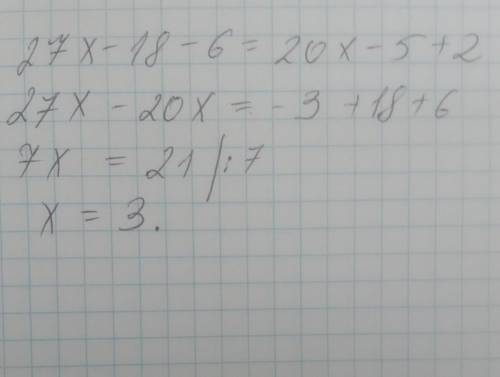 27x - 18 - 6 = 20x - 5 + 2
27x - 20x = - 3 + 18 + 6
7x = 21 |: 7
x = 3.